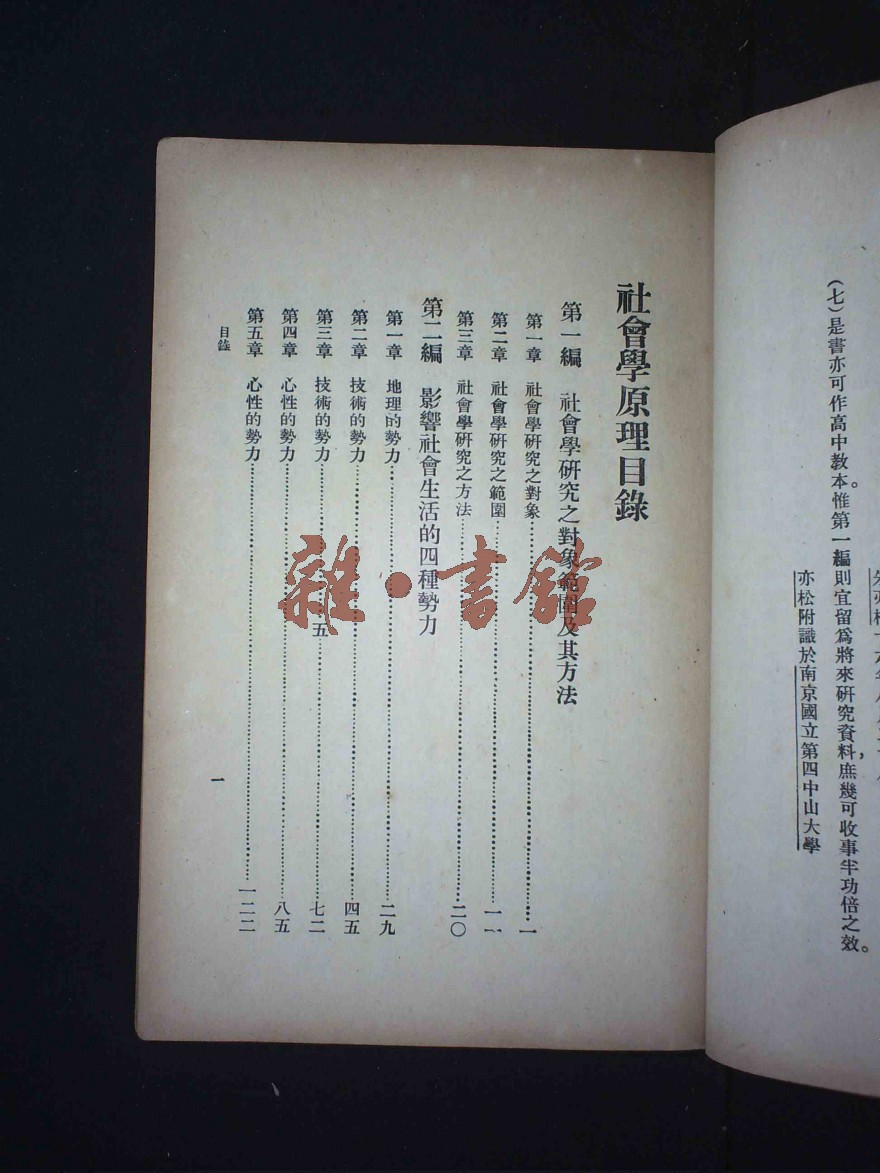 (七)是書亦可作高中教本。惟第一編則宜留爲將來研究資料,庶幾可收事半功倍之效。
亦松附識於南京國立第四中山大學
社會學原理目錄
第一編 社會學研究之對象範圍及其方法
第一章 社會學研究之對象……一
第二章 社會學研究之範圍
第三章 社會學研究之方法……二〇
第二編 影響社會生活的四種勢力
第一章 地理的勢力……二九
第二章 技術的勢力……四五
第三章 技術的勢力……五……七二
第四章 心性的勢力……八五
第五章 心性的勢力……一二二
目錄
一
雜·書館